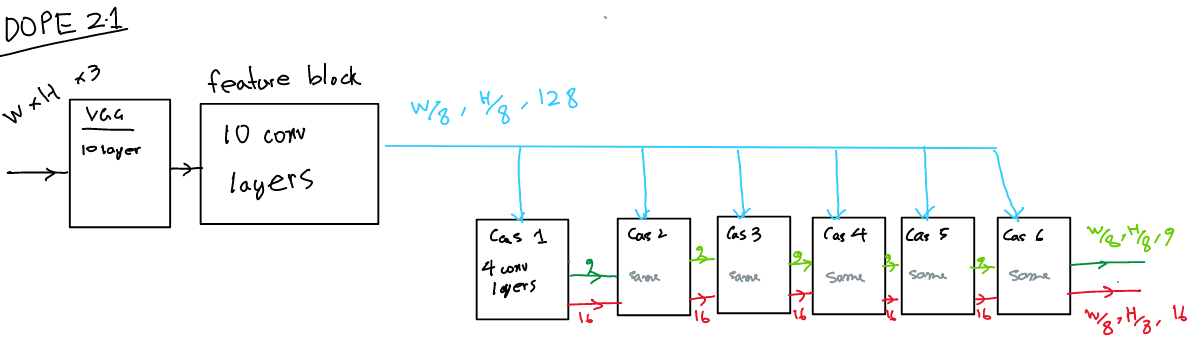 DOPE 2.1
W x H x3
VGG
10 layer
feature block
10 conv
layers
W/8, H/8, 128
Cas 1
4 conv
layers
9
16
Cas 2
same
9
16
Cas 3
same
9
16
Cas 4
same
9
16
Cas 5
same
9
16
Cas 6
same
W/8, H/8, 9
W/8, H/8, 16